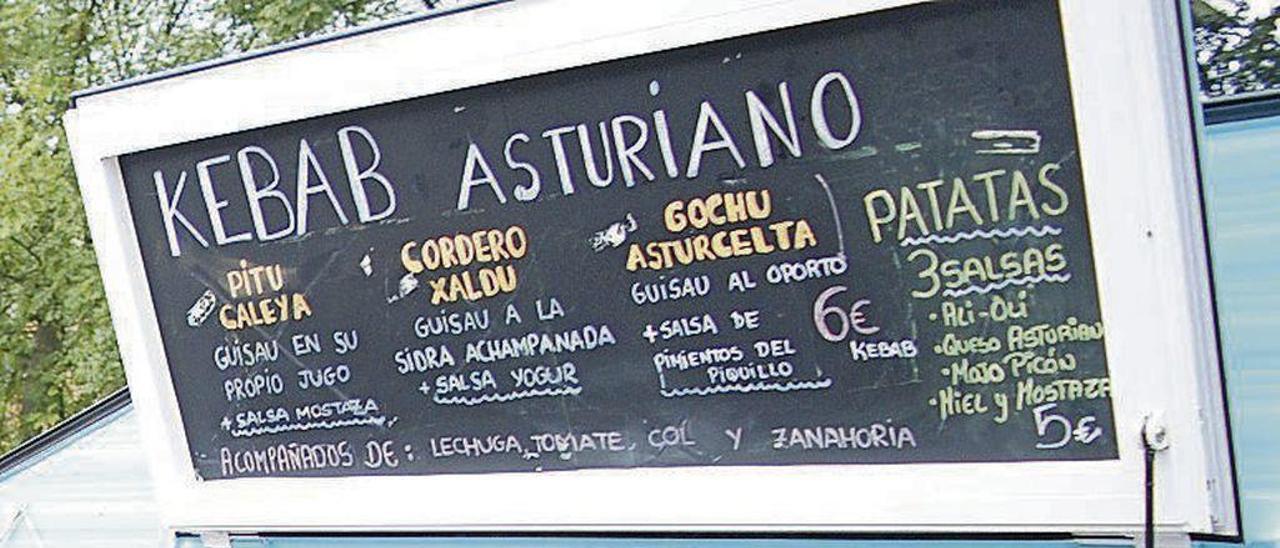 KEBAB ASTURIANO
PITU
CALEYA
GUISAU EN SU
PROPIO JUGO
+ SALSA MOSTAZA
CORDERO
XALDU
GUISAU A LA
SIDRA ACHAMPANADA
+ SALSA YOGUR
GOCHU
ASTURCELTA
GUISAU AL OPORTO
+ SALSA DE
PIMIENTOS DEL
PIQUILLO
6€
KEBAB
PATATAS
3 SALSAS
· Ali-Oli
· Queso Asturiano
· Mojo Picón
· Miel y Mostaza
5€
ACOMPAÑADOS DE: LECHUGA, TOMATE, COL Y ZANAHORIA